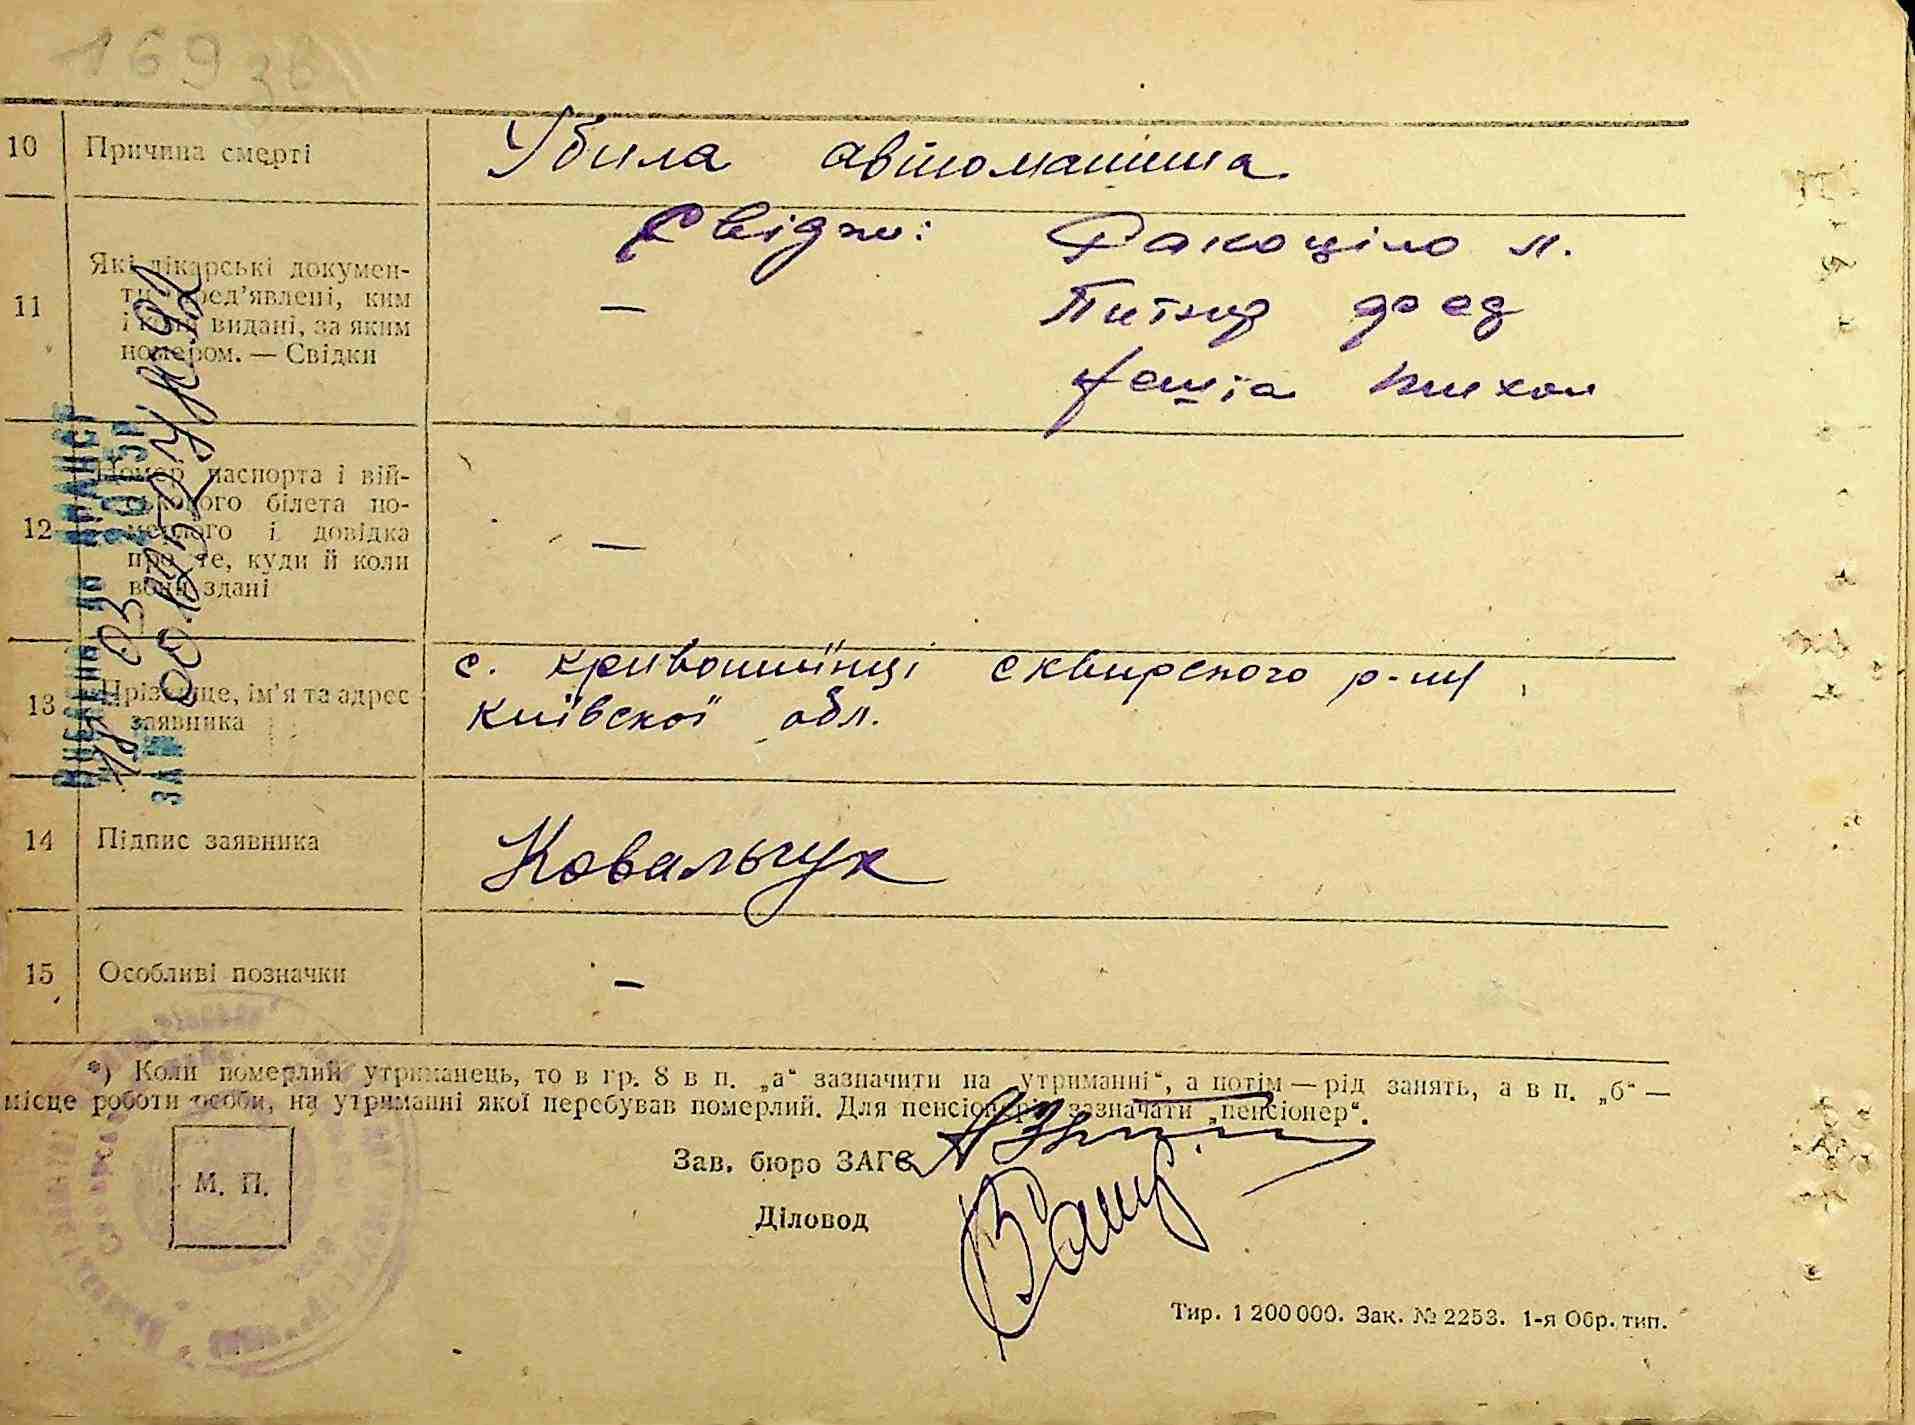 16938
10 Причина смерті Убила автомашина.
Свідки: Ракоціло М.
11 Які лікарські докумен-
ти пред'явлені, ким
і коли видані, за яким
номером. — Свідки
—
Тихон
12 Номер паспорта і вій-
ськового білета по-
мерлого і довідка
про те, куди й коли
вони здані
—
13 Прізвище, ім'я та адрес
заявника
с. Кривошиїнці Сквирского р-ну
Київскої обл.
14 Підпис заявника Ковальчук
15 Особливі позначки —
*) Коли померлий утриманець, то в гр. 8 в п. „а“ зазначити на „утриманні“, а потім — рід занять, а в п. „б“ —
місце роботи особи, на утриманні якої перебував померлий. Для пенсіонерів зазначати „пенсіонер“.
М. П.
Зав. бюро ЗАГС
Діловод
Тир. 1 200 000. Зак. № 2253. 1-я Обр. тип.
ВНЕСЕНО ДО ДРАЦСГ
ЗА №